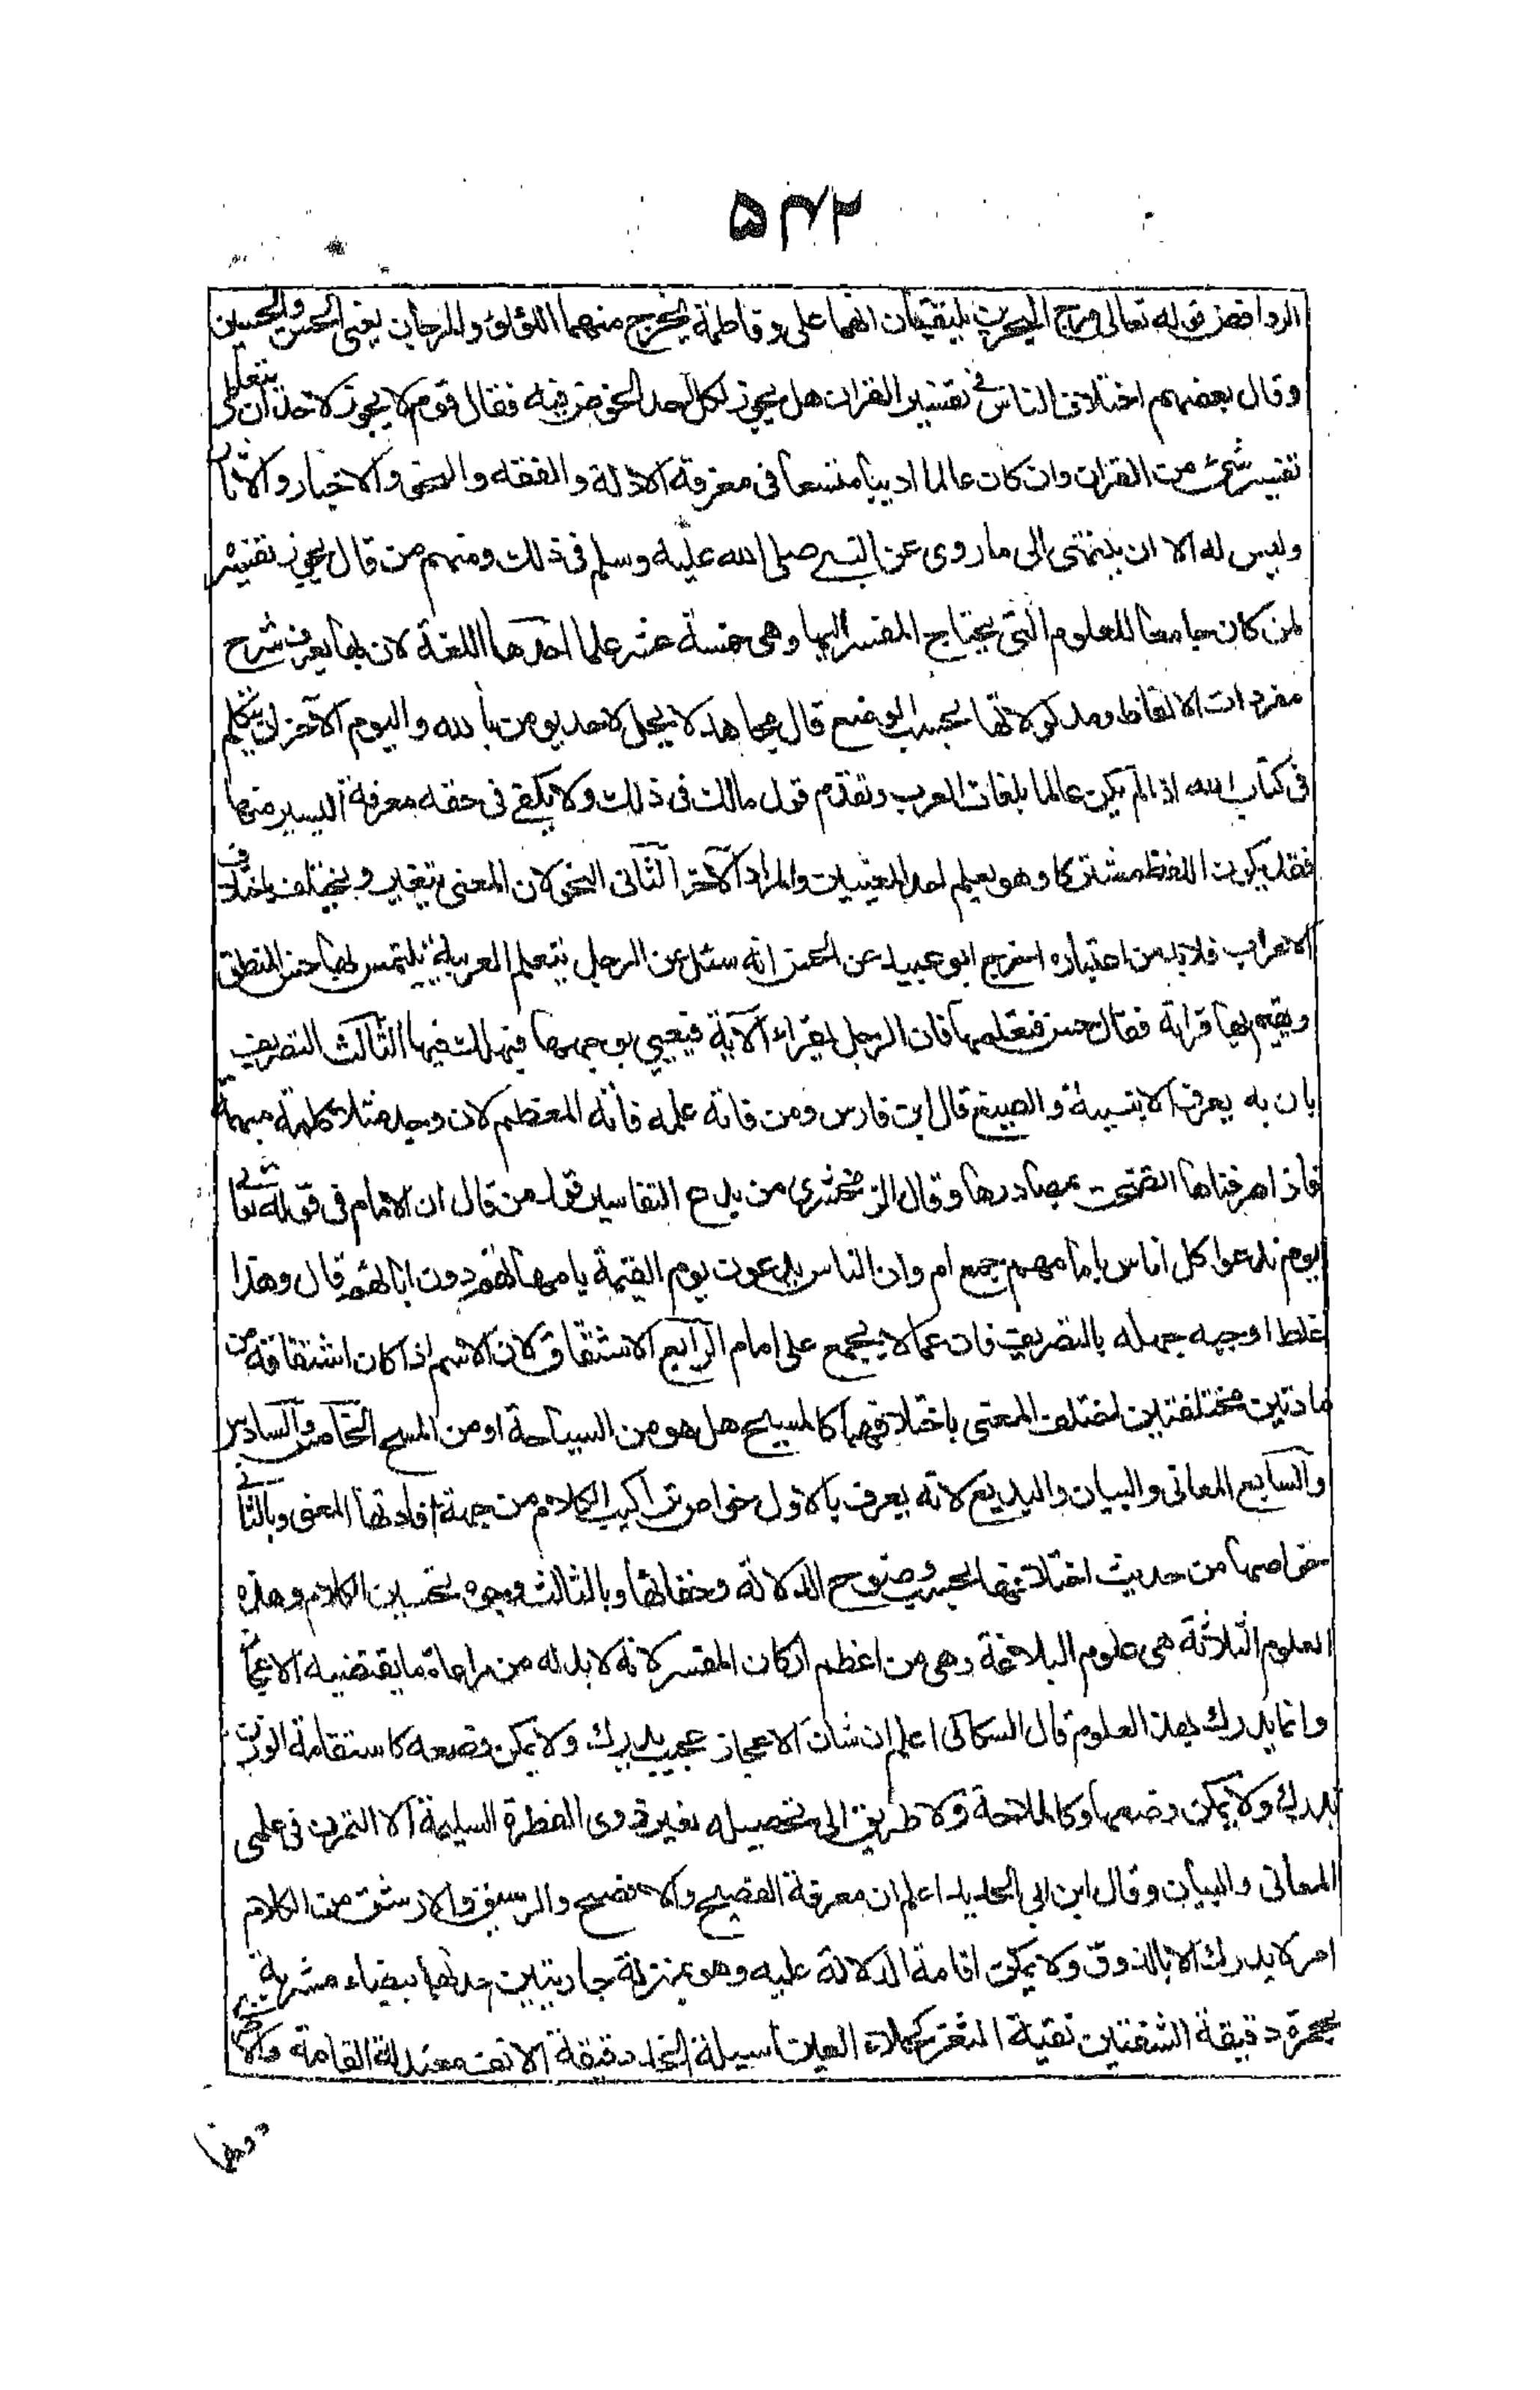 ۵۴۲
الروافض قوله تعالى مرج البحرين يلتقيان انهما على وفاطمة يخرج منهما اللؤلؤ والمرجان يعنى الحسن والحسين
وقال بعضهم اختلاف الناس فى تفسير القران هل يجوز لكل احد الخوض فيه فقال قوم لا يجوز لاحد ان يتعاطى
تفسير شئ من القران وان كان عالما اديبا متسعا فى معرفة الادلة والفقه والنحو والاخبار والاثار
وليس له الا ان ينتهى الى ما روى عن النبى صلى الله عليه وسلم فى ذلك ومنهم من قال يجوز تفسيره
لمن كان جامعا للعلوم التى يحتاج المفسر اليها وهى خمسة عشر علما احدها اللغة لان بها يعرف شرح
مفردات الالفاظ ومدلولاتها بحسب الوضع قال مجاهد لا يحل لاحد يومن بالله واليوم الآخر ان يتكلم
فى كتاب الله اذا لم يكن عالما بلغات العرب وتقدم قول مالك فى ذلك ولا يكفى فى حقه معرفة اليسير منها
فقد يكون اللفظ مشتركا وهو يعلم احد المعنيين والمراد الآخر الثانى النحو لان المعنى يتغير ويختلف باختلاف
الاعراب فلا بد من اعتباره اخرج ابو عبيد عن الحسن انه سئل عن الرجل يتعلم العربية يلتمس بها حسن المنطق
ويقيم بها قراته فقال حسن فتعلمها فان الرجل يقراء الآية فيعيى بوجهها فيهلك فيها الثالث التصريف
بان به يعرف الابنية والصيغ قال ابن فارس ومن فاته علمه فاته المعظم لان وجد مثلا كلمة مبهمة
فاذا صرفناها اتضحت بمصادرها وقال الزمخشرى من بدع التفاسير قول من قال ان الامام فى قوله تعالى
يوم ندعوا كل اناس بامامهم جمع ام وان الناس يدعون يوم القيمة بامهاتهم دون ابائهم قال وهذا
غلط اوجبه جهله بالتصريف فان اما لا يجمع على امام الرابع الاشتقاق لان الاسم اذا كان اشتقاقه من
مادتين مختلفتين اختلف المعنى باختلافهما كالمسيح هل هو من السياحة او من المسح الخامس والسادس
والسابع المعانى والبيان والبديع لانه يعرف بالاول خواص تراكيب الكلام من جهة افادتها المعنى وبالثانى
خواصها من حديث اختلافها بحسب وضوح الدلالة وخفائها وبالثالث وجوه تحسين الكلام وهذه
العلوم الثلاثة هى علوم البلاغة وهى من اعظم اركان المفسر لانه لا بد له من مراعاة ما يقتضيه الاعجاز
وانما يدرك بهذه العلوم قال السكاكى اعلم ان شان الاعجاز عجيب يدرك ولا يمكن وصفه كاستقامة الوزن
يدرك ولا يمكن وصفها وكالملاحة ولا طريق الى تحصيله لغير ذوى الفطرة السليمة الا التمرن فى علمى
المعانى والبيان وقال ابن ابى الحديد اعلم ان معرفة الفصيح والافصح والرشيق والارشق من الكلام
امر لا يدرك الا بالذوق ولا يمكن اقامة الدلالة عليه وهو بمنزلة جاريتين احدهما بيضاء مشربة
بحمرة دقيقة الشفتين نقية الثغر كحلاء العين اسيلة الخد دقيقة الانف معتدلة القامة والاخرى
دونها